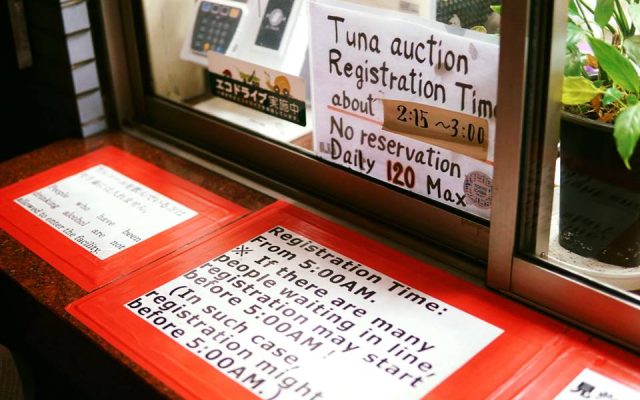 Tuna auction
Registration Time
about 2:15~3:00
No reservation
Daily 120 Max
エコドライブ実施中
People who have been
drinking alcohol are not
allowed to enter the facility.
Registration Time:
From 5:00AM.
※ If there are many
people waiting in line,
registration may start
before 5:00AM!
(In such case,
registration might
before 5:00AM.)
見